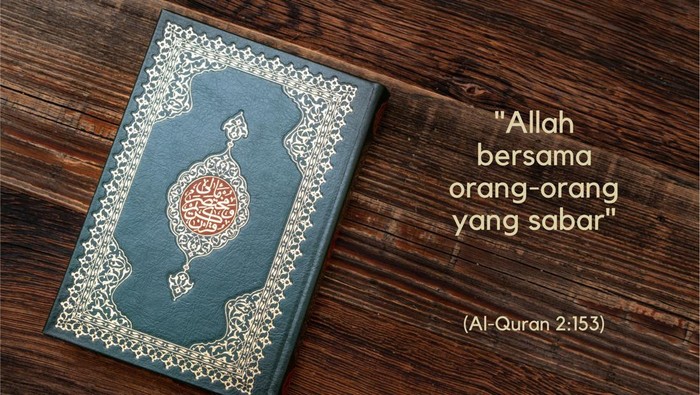 "Allah
bersama
orang-orang
yang sabar"
(Al-Quran 2:153)